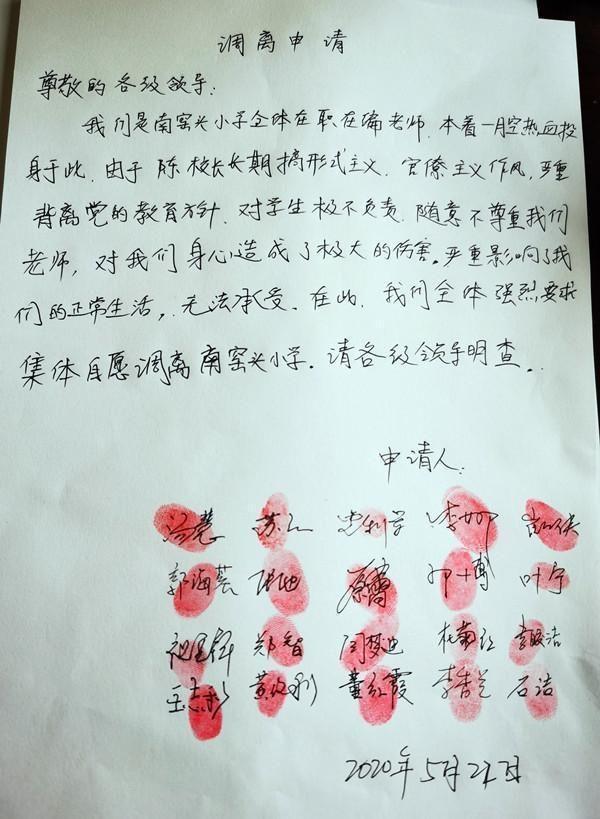 调离申请
尊敬的各级领导:
我们是南窑头小学全体在职在编老师.本着一腔热血投
身于此.由于陈校长长期搞形式主义.官僚主义作风,严重
背离党的教育方针.对学生极不负责.随意不尊重我们
老师,对我们身心造成了极大的伤害。严重影响了我
们的正常生活,无法承受.在此.我们全体强烈要求
集体自愿调离南窑头小学.请各级领导明查.
申请人:
苏红 李娜
郭海荟 叶宁
郑智 闫梦迪
王志彩 董红霞 李普兰 石洁
2020年5月22日